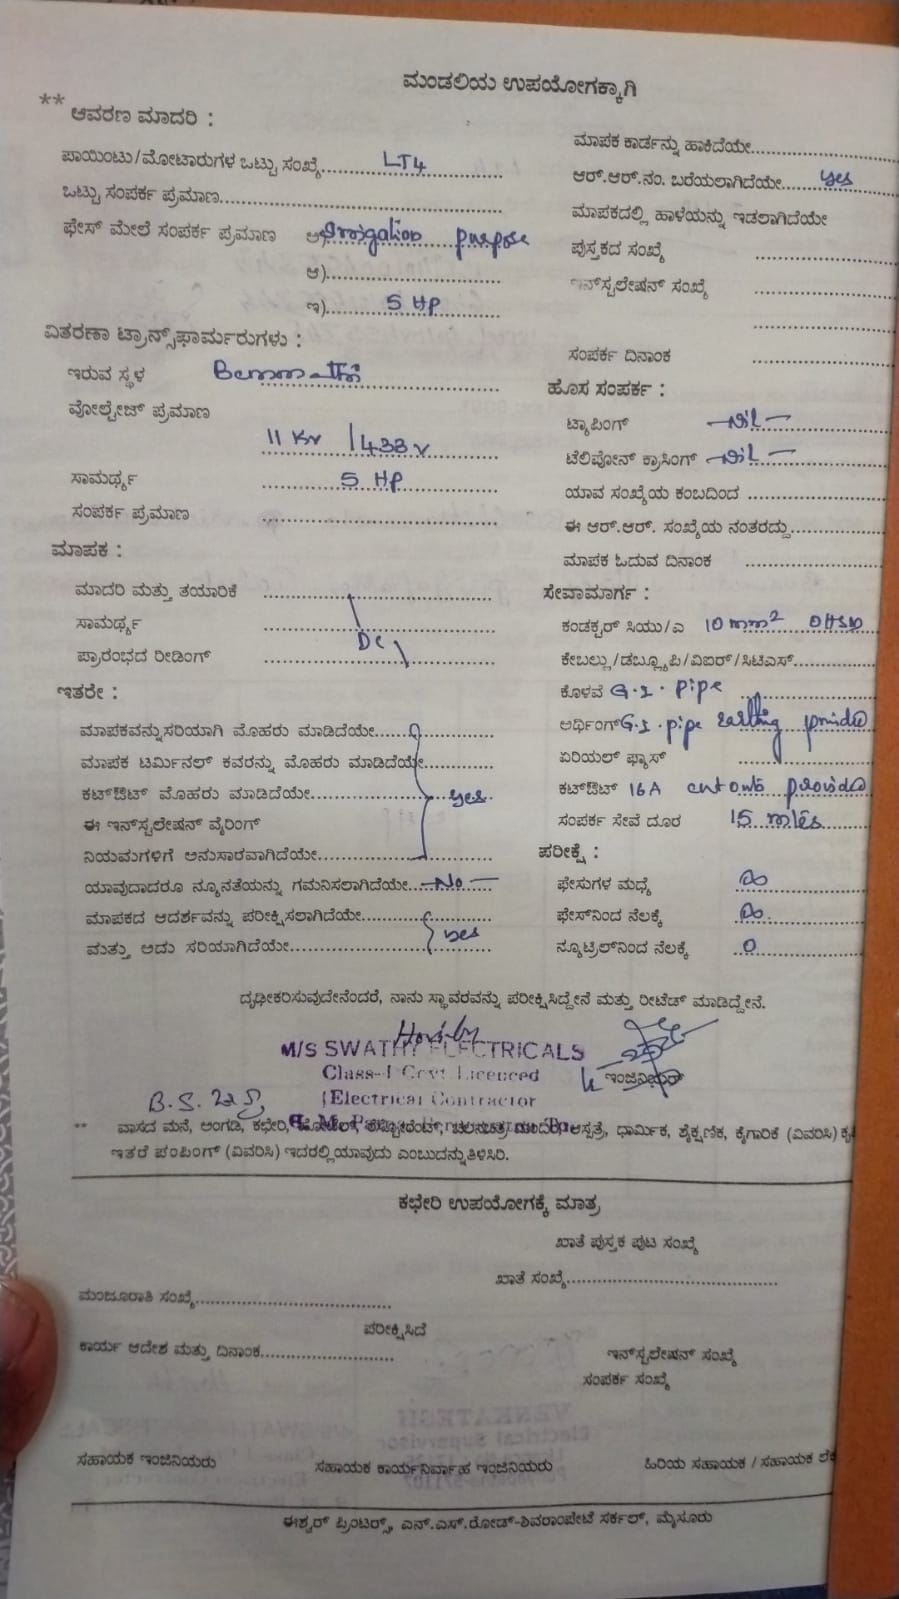 ಮಂಡಲಿಯ ಉಪಯೋಗಕ್ಕಾಗಿ
** ಆವರಣ ಮಾದರಿ :
ಪಾಯಿಂಟು/ಮೋಟಾರುಗಳ ಒಟ್ಟು ಸಂಖ್ಯೆ LT4
ಒಟ್ಟು ಸಂಪರ್ಕ ಪ್ರಮಾಣ
ಫೇಸ್ ಮೇಲೆ ಸಂಪರ್ಕ ಪ್ರಮಾಣ ಅ) Irrigation purpose
ಆ)
ಇ) 5 HP
ವಿತರಣಾ ಟ್ರಾನ್ಸ್‌ಫಾರ್ಮರುಗಳು :
ಇರುವ ಸ್ಥಳ
ವೋಲ್ಟೇಜ್ ಪ್ರಮಾಣ
11 Kv / 433 v
ಸಾಮರ್ಥ್ಯ 5 HP
ಸಂಪರ್ಕ ಪ್ರಮಾಣ
ಮಾಪಕ :
ಮಾದರಿ ಮತ್ತು ತಯಾರಿಕೆ
ಸಾಮರ್ಥ್ಯ
DC
ಪ್ರಾರಂಭದ ರೀಡಿಂಗ್
ಇತರೇ :
ಮಾಪಕವನ್ನುಸರಿಯಾಗಿ ಮೊಹರು ಮಾಡಿದೆಯೇ
ಮಾಪಕ ಟರ್ಮಿನಲ್ ಕವರನ್ನು ಮೊಹರು ಮಾಡಿದೆಯೇ
ಕಟ್‌ಔಟ್ ಮೊಹರು ಮಾಡಿದೆಯೇ yes
ಈ ಇನ್‌ಸ್ಟಲೇಷನ್ ವೈರಿಂಗ್
ನಿಯಮಗಳಿಗೆ ಅನುಸಾರವಾಗಿದೆಯೇ
ಯಾವುದಾದರೂ ನ್ಯೂನತೆಯನ್ನು ಗಮನಿಸಲಾಗಿದೆಯೇ No
ಮಾಪಕದ ಆದರ್ಶವನ್ನು ಪರೀಕ್ಷಿಸಲಾಗಿದೆಯೇ
yes
ಮತ್ತು ಅದು ಸರಿಯಾಗಿದೆಯೇ
ಮಾಪಕ ಕಾರ್ಡನ್ನು ಹಾಕಿದೆಯೇ
ಆರ್.ಆರ್.ನಂ. ಬರೆಯಲಾಗಿದೆಯೇ yes
ಮಾಪಕದಲ್ಲಿ ಹಾಳೆಯನ್ನು ಇಡಲಾಗಿದೆಯೇ
ಪುಸ್ತಕದ ಸಂಖ್ಯೆ
ಇನ್‌ಸ್ಟಲೇಷನ್ ಸಂಖ್ಯೆ
ಸಂಪರ್ಕ ದಿನಾಂಕ
ಹೊಸ ಸಂಪರ್ಕ :
ಟ್ಯಾಪಿಂಗ್ Nil
ಟೆಲಿಪೋನ್ ಕ್ರಾಸಿಂಗ್ Nil
ಯಾವ ಸಂಖ್ಯೆಯ ಕಂಬದಿಂದ
ಈ ಆರ್.ಆರ್. ಸಂಖ್ಯೆಯ ನಂತರದ್ದು
ಮಾಪಕ ಓದುವ ದಿನಾಂಕ
ಸೇವಾಮಾರ್ಗ :
ಕಂಡಕ್ಟರ್ ಸಿಯು/ಎ 10 mm2
ಕೇಬಲ್ಲು/ಡಬ್ಲ್ಯೂಪಿ/ವಿಐರ್/ಸಿಟಿಎಸ್
ಕೊಳವೆ G.I. pipe
ಅರ್ಥಿಂಗ್ G.I. pipe earthing
ಏರಿಯಲ್ ಫ್ಯೂಸ್
ಕಟ್‌ಔಟ್ 16A cutouts
ಸಂಪರ್ಕ ಸೇವೆ ದೂರ 15
ಪರೀಕ್ಷೆ :
ಫೇಸುಗಳ ಮಧ್ಯೆ ∞
ಫೇಸ್‌ನಿಂದ ನೆಲಕ್ಕೆ ∞
ನ್ಯೂಟ್ರಲ್‌ನಿಂದ ನೆಲಕ್ಕೆ 0
ದೃಢೀಕರಿಸುವುದೇನೆಂದರೆ, ನಾನು ಸ್ಥಾವರವನ್ನು ಪರೀಕ್ಷಿಸಿದ್ದೇನೆ ಮತ್ತು ರೀಟೆಡ್ ಮಾಡಿದ್ದೇನೆ.
M/S SWATHY ELECTRICALS
Class-I Govt Licenced
Electrical Contractor
ಇಂಜಿನಿಯರ್
** ವಾಸದ ಮನೆ, ಅಂಗಡಿ, ಕಛೇರಿ, ಹೋಟೆಲ್, ಆಸ್ಪತ್ರೆ, ಧಾರ್ಮಿಕ, ಶೈಕ್ಷಣಿಕ, ಕೈಗಾರಿಕೆ (ವಿವರಿಸಿ)
ಇತರೆ ಪಂಪಿಂಗ್ (ವಿವರಿಸಿ) ಇದರಲ್ಲಿಯಾವುದು ಎಂಬುದನ್ನುತಿಳಿಸಿರಿ.
ಕಛೇರಿ ಉಪಯೋಗಕ್ಕೆ ಮಾತ್ರ
ಖಾತೆ ಪುಸ್ತಕ ಪುಟ ಸಂಖ್ಯೆ
ಖಾತೆ ಸಂಖ್ಯೆ
ಮಂಜೂರಾತಿ ಸಂಖ್ಯೆ
ಪರೀಕ್ಷಿಸಿದೆ
ಕಾರ್ಯ ಆದೇಶ ಮತ್ತು ದಿನಾಂಕ
ಇನ್‌ಸ್ಟಲೇಷನ್ ಸಂಖ್ಯೆ
ಸಂಪರ್ಕ ಸಂಖ್ಯೆ
ಸಹಾಯಕ ಇಂಜಿನಿಯರು ಸಹಾಯಕ ಕಾರ್ಯನಿರ್ವಾಹ ಇಂಜಿನಿಯರು ಹಿರಿಯ ಸಹಾಯಕ / ಸಹಾಯಕ
ಈಶ್ವರ್ ಪ್ರಿಂಟರ್ಸ್, ಎನ್.ಎಸ್.ರೋಡ್-ಶಿವರಾಂಪೇಟೆ ಸರ್ಕಲ್, ಮೈಸೂರು